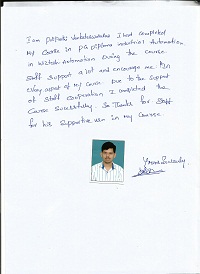 I am Venkateswarlu I have completed
My Course in PG Diploma industrial Automation
in Wiztech Automation During the course
Staff Support a lot and encourage me in
Every aspect of my course Due to the Support
of Staff cooperation I completed the
Course Successfully. So Thanks for Staff
for his Supportive in my Course
Yours Sincerely